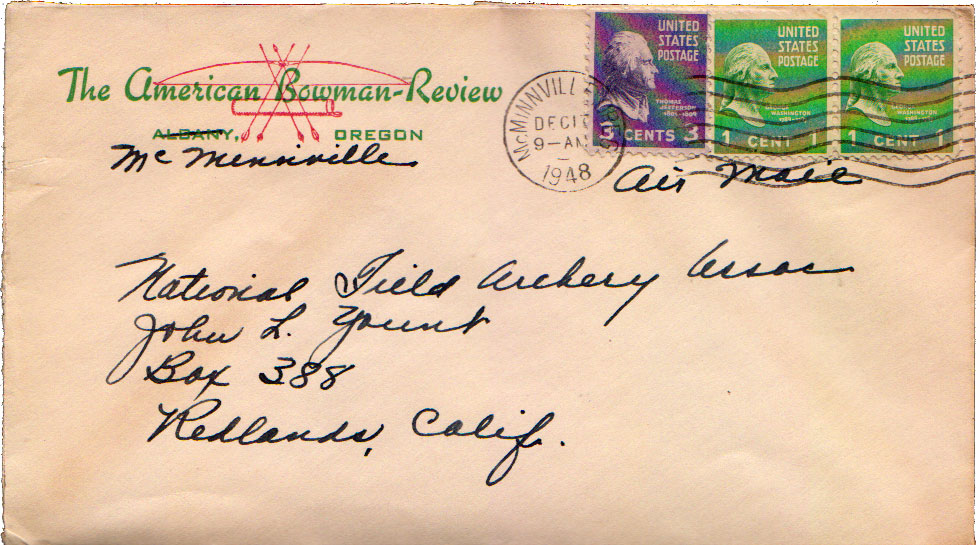 The American Bowman-Review
ALBANY, OREGON
Mc Menniville
McMINNVILL
DEC 1
9-AM
1948
UNITED STATES POSTAGE
THOMAS JEFFERSON
3 CENTS 3
UNITED STATES POSTAGE
WASHINGTON
1 CENT 1
UNITED STATES POSTAGE
WASHINGTON
1 CENT 1
Air Mail
National Field Archery Assoc
John L. Yount
Box 388
Redlands, Calif.